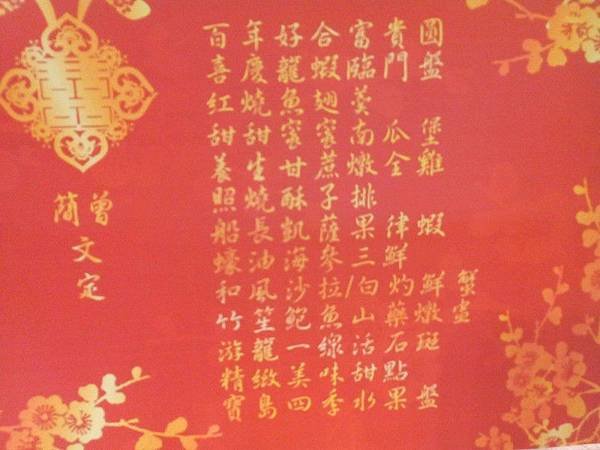 百年好合富貴圓
喜慶龍蝦臨門盤
紅燒魚翅羹
甜甜蜜蜜南瓜堡
養生甘蔗燉全雞
照燒酥子排
船長凱薩果律蝦
蠔油海參三鮮
和風沙拉/白灼鮮蟹
竹笙鮑魚山藥燉盅
游龍一線活石斑
精緻美味甜點
寶島四季水果盤
簡曾
文
定